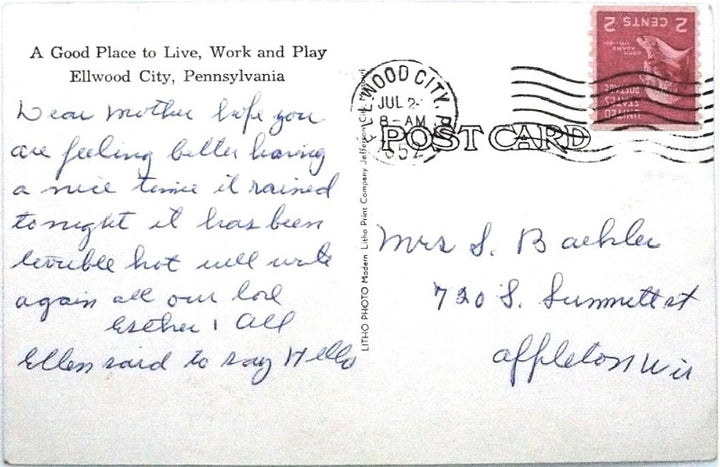 A Good Place to Live, Work and Play
Ellwood City, Pennsylvania
Dear Mother hope you
are feeling better having
a nice time it rained
tonight it has been
terrible hot will write
again all our love
Esther & All
Ellen said to say Hello
LITHO PHOTO Modern Litho Print Company Jefferson City, Missouri
ELLWOOD CITY, PA.
JUL 2
8-AM
1952
2 CENTS 2
JOHN ADAMS
UNITED
STATES
POSTAGE
POST CARD
Mrs S. Baehler
720 S. Summett st
Appleton Wis